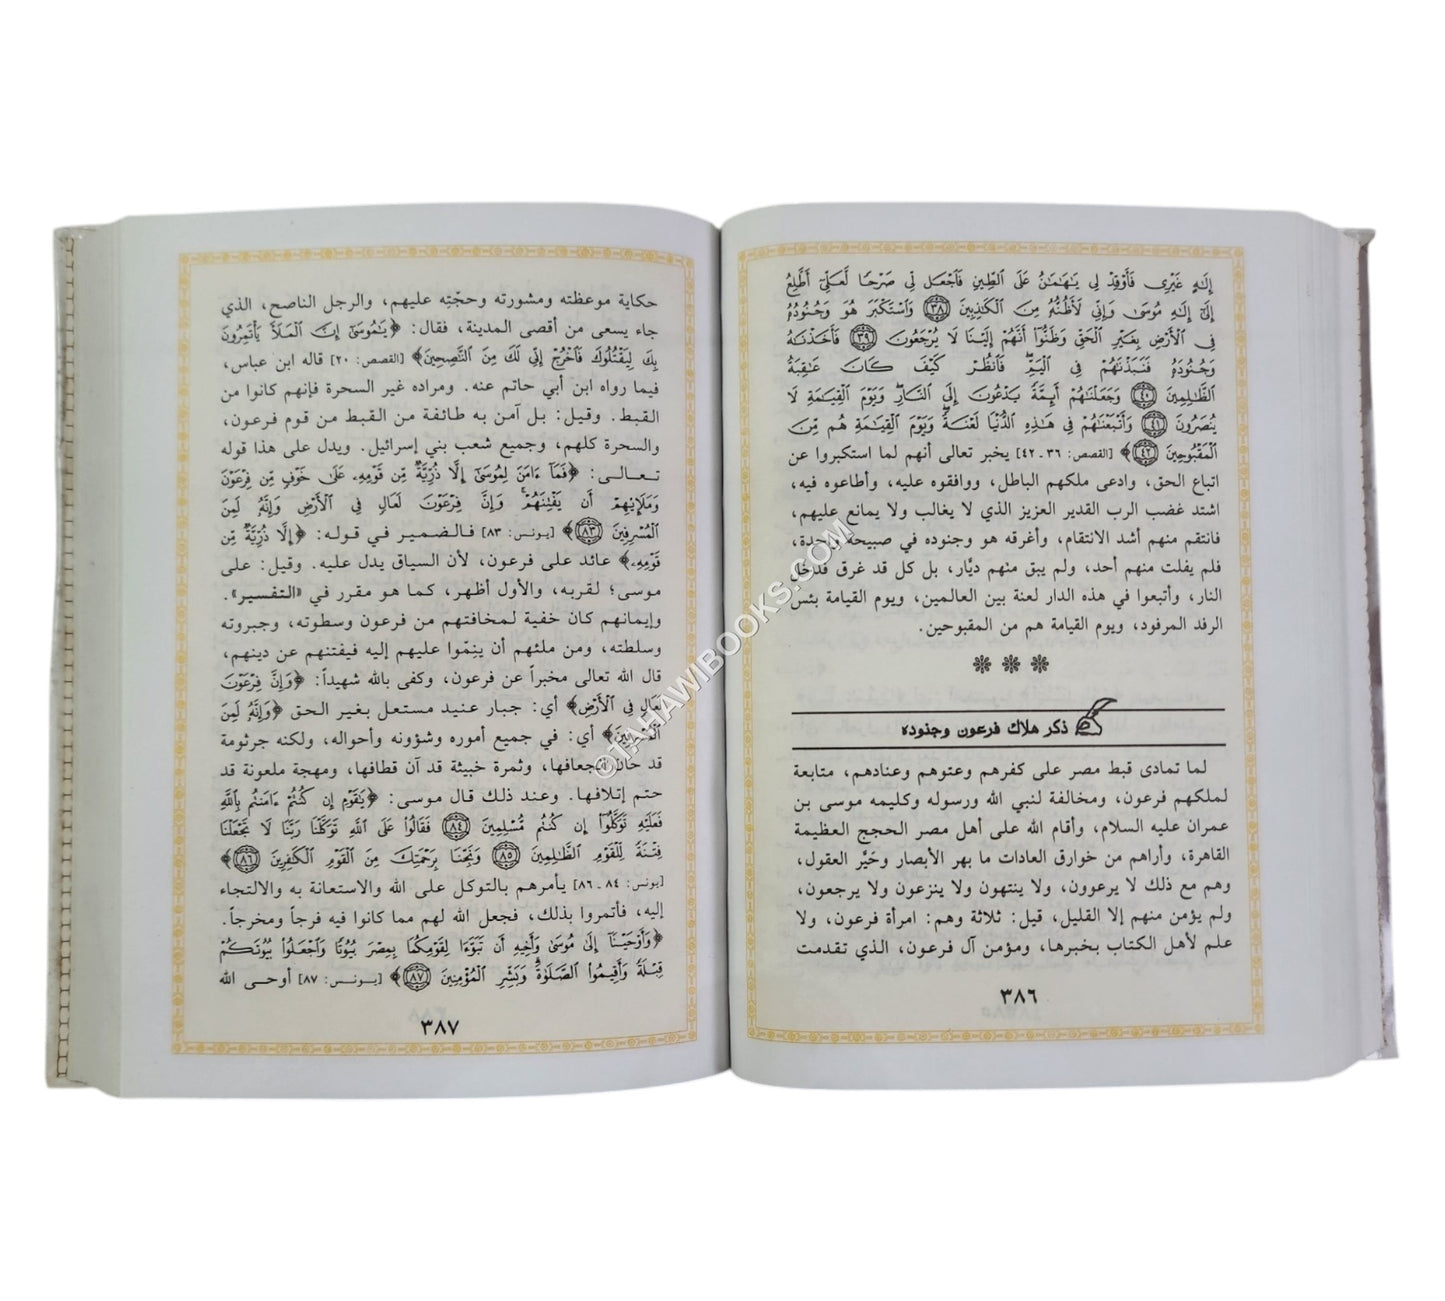 إِلَٰهٍ غَيْرِي فَأَوْقِدْ لِي يَٰهَٰمَٰنُ عَلَى ٱلطِّينِ فَٱجْعَل لِّي صَرْحًا لَّعَلِّيٓ أَطَّلِعُ
إِلَىٰٓ إِلَٰهِ مُوسَىٰ وَإِنِّي لَأَظُنُّهُۥ مِنَ ٱلْكَٰذِبِينَ ٣٨ وَٱسْتَكْبَرَ هُوَ وَجُنُودُهُۥ
فِي ٱلْأَرْضِ بِغَيْرِ ٱلْحَقِّ وَظَنُّوٓا۟ أَنَّهُمْ إِلَيْنَا لَا يُرْجَعُونَ ٣٩ فَأَخَذْنَٰهُ
وَجُنُودَهُۥ فَنَبَذْنَٰهُمْ فِي ٱلْيَمِّ فَٱنظُرْ كَيْفَ كَانَ عَٰقِبَةُ
ٱلظَّٰلِمِينَ ٤٠ وَجَعَلْنَٰهُمْ أَئِمَّةً يَدْعُونَ إِلَى ٱلنَّارِ وَيَوْمَ ٱلْقِيَٰمَةِ لَا
يُنصَرُونَ ٤١ وَأَتْبَعْنَٰهُمْ فِي هَٰذِهِ ٱلدُّنْيَا لَعْنَةً وَيَوْمَ ٱلْقِيَٰمَةِ هُم مِّنَ
ٱلْمَقْبُوحِينَ ٤٢﴾ [القصص: ٣٦ ـ ٤٢] يخبر تعالى أنهم لما استكبروا عن
اتباع الحق، وادعى ملكهم الباطل، ووافقوه عليه، وأطاعوه فيه،
اشتد غضب الرب القدير العزيز الذي لا يغالب ولا يمانع عليهم،
فانتقم منهم أشد الانتقام، وأغرقه هو وجنوده في صبيحة واحدة،
فلم يفلت منهم أحد، ولم يبق منهم ديَّار، بل كل قد غرق فدخل
النار، وأتبعوا في هذه الدار لعنة بين العالمين، ويوم القيامة بئس
الرفد المرفود، ويوم القيامة هم من المقبوحين.
ذكر هلاك فرعون وجنوده
لما تمادى قبط مصر على كفرهم وعتوهم وعنادهم، متابعة
لملكهم فرعون، ومخالفة لنبي الله ورسوله وكليمه موسى بن
عمران عليه السلام، وأقام الله على أهل مصر الحجج العظيمة
القاهرة، وأراهم من خوارق العادات ما بهر الأبصار وحَيَّر العقول،
وهم مع ذلك لا يرعوون، ولا ينتهون ولا ينزعون ولا يرجعون،
ولم يؤمن منهم إلا القليل، قيل: ثلاثة وهم: امرأة فرعون، ولا
علم لأهل الكتاب بخبرها، ومؤمن آل فرعون، الذي تقدمت
٣٨٦
حكاية موعظته ومشورته وحجّتِه عليهم، والرجل الناصح، الذي
جاء يسعى من أقصى المدينة، فقال: ﴿يَٰمُوسَىٰٓ إِنَّ ٱلْمَلَأَ يَأْتَمِرُونَ
بِكَ لِيَقْتُلُوكَ فَٱخْرُجْ إِنِّي لَكَ مِنَ ٱلنَّٰصِحِينَ﴾ [القصص: ٢٠] قاله ابن عباس،
فيما رواه ابن أبي حاتم عنه. ومراده غير السحرة فإنهم كانوا من
القبط. وقيل: بل آمن به طائفة من القبط من قوم فرعون،
والسحرة كلهم، وجميع شعب بني إسرائيل. ويدل على هذا قوله
تعالى: ﴿فَمَآ ءَامَنَ لِمُوسَىٰٓ إِلَّا ذُرِّيَّةٌ مِّن قَوْمِهِۦ عَلَىٰ خَوْفٍ مِّن فِرْعَوْنَ
وَمَلَإِي۟هِمْ أَن يَفْتِنَهُمْ وَإِنَّ فِرْعَوْنَ لَعَالٍ فِي ٱلْأَرْضِ وَإِنَّهُۥ لَمِنَ
ٱلْمُسْرِفِينَ ٨٣﴾ [يونس: ٨٣] فالضمير في قوله: ﴿إِلَّا ذُرِّيَّةٌ مِّن
قَوْمِهِۦ﴾ عائد على فرعون، لأن السياق يدل عليه. وقيل: على
موسى؛ لقربه، والأول أظهر، كما هو مقرر في «التفسير».
وإيمانهم كان خفية لمخافتهم من فرعون وسطوته، وجبروته
وسلطته، ومن ملئهم أن ينِمّوا عليهم إليه فيفتنهم عن دينهم،
قال الله تعالى مخبراً عن فرعون، وكفى بالله شهيداً: ﴿وَإِنَّ فِرْعَوْنَ
لَعَالٍ فِي ٱلْأَرْضِ﴾ أي: جبار عنيد مستعل بغير الحق ﴿وَإِنَّهُۥ لَمِنَ
ٱلْمُسْرِفِينَ﴾ أي: في جميع أموره وشؤونه وأحواله، ولكنه جرثومة
قد حان انجعافها، وثمرة خبيثة قد آن قطافها، ومهجة ملعونة قد
حتم إتلافها. وعند ذلك قال موسى: ﴿يَٰقَوْمِ إِن كُنتُمْ ءَامَنتُم بِٱللَّهِ
فَعَلَيْهِ تَوَكَّلُوٓا۟ إِن كُنتُم مُّسْلِمِينَ ٨٤ فَقَالُوا۟ عَلَى ٱللَّهِ تَوَكَّلْنَا رَبَّنَا لَا تَجْعَلْنَا
فِتْنَةً لِّلْقَوْمِ ٱلظَّٰلِمِينَ ٨٥ وَنَجِّنَا بِرَحْمَتِكَ مِنَ ٱلْقَوْمِ ٱلْكَٰفِرِينَ ٨٦﴾
[يونس: ٨٤ ـ ٨٦] يأمرهم بالتوكل على الله والاستعانة به والالتجاء
إليه، فأتمروا بذلك، فجعل الله لهم مما كانوا فيه فرجاً ومخرجاً.
﴿وَأَوْحَيْنَآ إِلَىٰ مُوسَىٰ وَأَخِيهِ أَن تَبَوَّءَا لِقَوْمِكُمَا بِمِصْرَ بُيُوتًا وَٱجْعَلُوا۟ بُيُوتَكُمْ
قِبْلَةً وَأَقِيمُوا۟ ٱلصَّلَوٰةَ وَبَشِّرِ ٱلْمُؤْمِنِينَ ٨٧﴾ [يونس: ٨٧] أوحى الله
٣٨٧
©TAHAWIBOOKS.COM